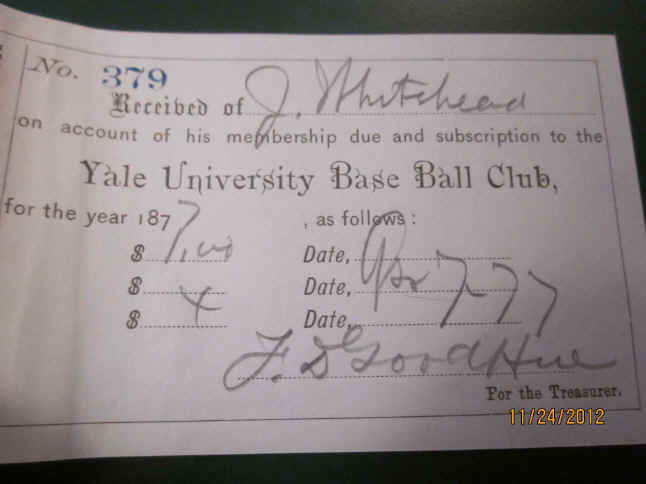 No. 379
Received of J. Whitehead
on account of his membership due and subscription to the
Yale University Base Ball Club,
for the year 1877, as follows:
$ Date, Apr 7-77
$ Date,
$ Date,
F. D Goodhue
For the Treasurer.
11/24/2012